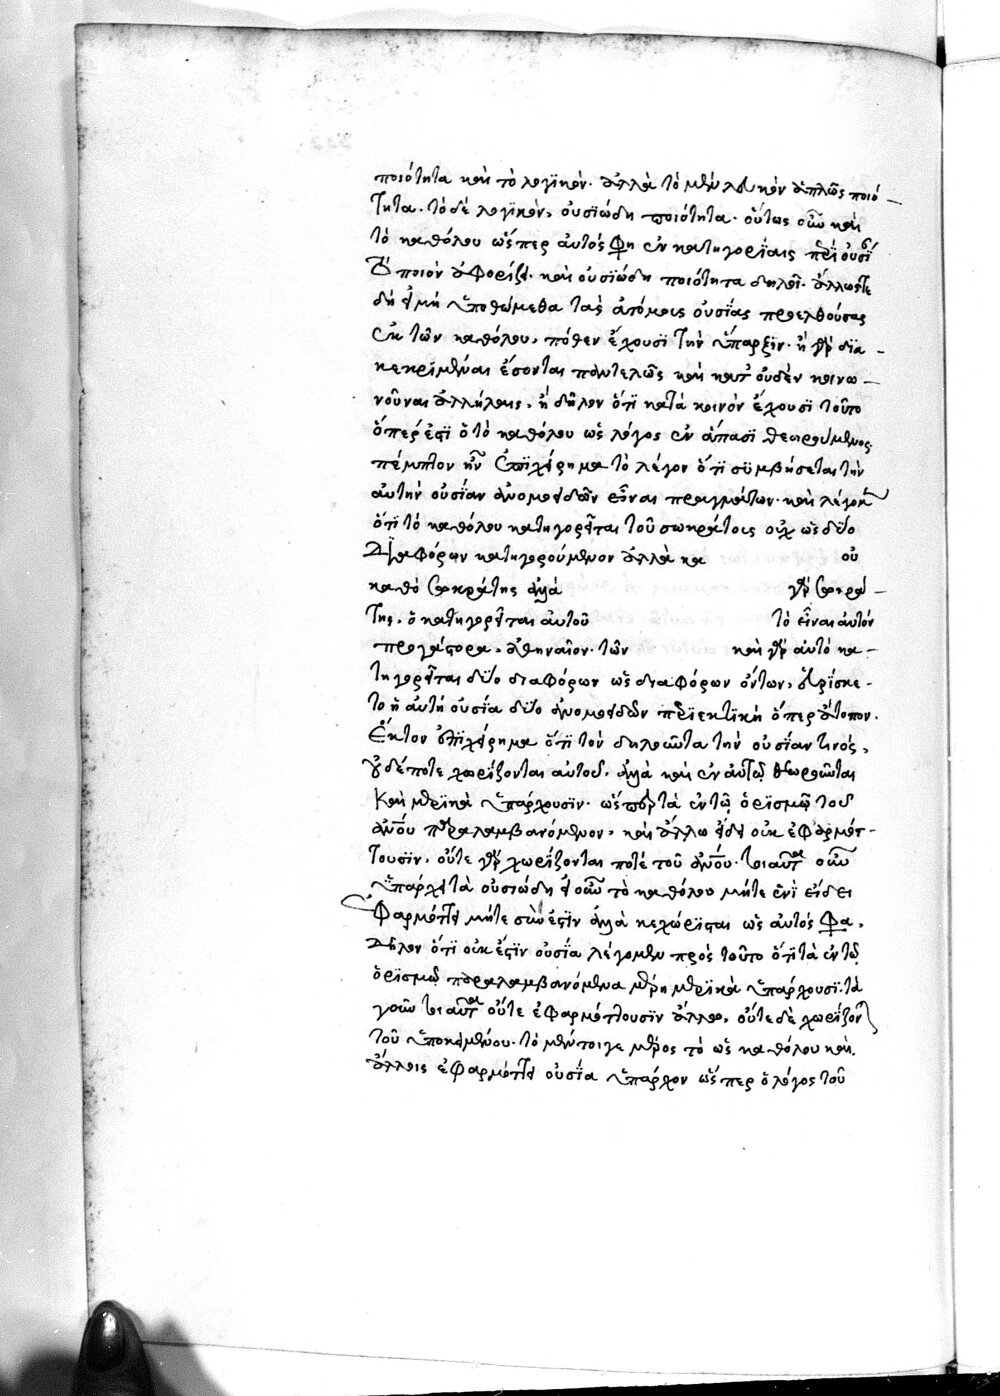 ποιότητα καὶ τὸ λογικόν· ἀλλὰ τὸ μὲν λευκὸν ἁπλῶς ποιό
τητα· τὸ δὲ λογικὸν, οὐσιώδη ποιότητα· οὕτως οὖν καὶ
τὸ καθόλου ὥσπερ αὐτός φη ἐν κατηγορίαις περὶ οὐσί
ποιὸν ἀφορίζει· καὶ οὐσιώδη ποιότητα δηλοῖ· ἄλλως τε
δὴ εἰ μὴ ὑποθώμεθα τὰς ἀτόμους οὐσίας προελθούσας
ἐκ τῶν καθόλου, πόθεν ἔχουσι τὴν ὕπαρξιν· ἢ γὰρ δια
κεκριμέναι ἔσονται παντελῶς καὶ κατ' οὐδὲν κοινω
νοῦσαι ἀλλήλαις, ἢ δῆλον ὅτι κατὰ κοινὸν ἔχουσι τοῦτο
ὅπερ ἐστὶ τὸ καθόλου ὡς λόγος ἐν ἅπασι θεωρούμενος
πέμπτον ἦν ἐπιχείρημα τὸ λέγον ὅτι συμβήσεται τὴν
αὐτὴν οὐσίαν ἀνομοειδῶν εἶναι πραγμάτων· καὶ λέγομεν
ὅτι τὸ καθόλου κατηγορεῖται τοῦ σωκράτους οὐχ ὡς δύο
διαφόρων κατηγορούμενον ἀλλὰ κα οὐ
καθὸ σωκράτης ἀλλὰ γὰρ σωκρά
της, ὃ κατηγορεῖται αὐτοῦ τὸ εἶναι αὐτὸν
ἀθηναῖον· τῶν καὶ γὰρ αὐτὸ κα
τηγορεῖται δύο διαφόρων ὡς διαφόρων ὄντων, εὑρίσκε
το ἡ αὐτὴ οὐσία δύο ἀνομοειδῶν περιεκτικὴ ὅπερ ἄτοπον.
Ἕκτον ἐπιχείρημα ὅτι τὸν δηλοῦντα τὴν οὐσίαν τινός,
οὐδέποτε χωρίζονται αὐτοῦ, ἀλλὰ καὶ ἐν αὐτῷ θεωροῦνται
καὶ μερικὰ ὑπάρχουσιν· ὥσπερ τὰ ἐν τῷ ὁρισμῷ τοῦ
ἀνου παραλαμβανόμενον, καὶ ἄλλω εἴδει οὐκ ἐφαρμότ
τουσιν, οὔτε γὰρ χωρίζονται ποτὲ τοῦ ἀνου· τοιαῦτα οὖν
ὑπάρχει τὰ οὐσιώδη εἰ οὖν τὸ καθόλου μήτε ἑνὶ εἴδει
ἐφαρμόττει μήτε ἐστὶν ἀλλὰ κεχώρισται ὡς αὐτός φα,
δῆλον ὅτι οὐκ ἔστιν οὐσία λέγομεν πρὸς τοῦτο ὅτι τὰ ἐν τῷ
ὁρισμῷ παραλαμβανόμενα μέρη μερικὰ ὑπάρχουσι· τὰ
γοῦν τοιαῦτα οὔτε ἐφαρμόττουσιν ἄλλω, οὔτε δὲ χωρίζον
τοῦ ὑποκειμένου· τὸ μέντοιγε μέρος τὸ ὡς καθόλου καὶ
ἄλλοις ἐφαρμόττει οὐσία ὑπάρχον ὥσπερ ὁ λόγος τοῦ